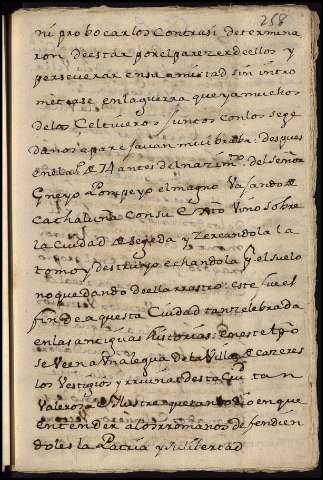 258
ni probocar los contra si determina
ron deestar por el parezer deellos y
perseverar en sa amistad sin intro
meterse en la guerra que ya muchos
de los Celtiveros juntos con los sege
danos aparejavan mui braba; despues
en el a.º de 74 antes del nazim.to del Señor
Gneyo Pompeyo el magno Vajando de
Cathaluna con su Ex.to Vino sobre
la Ciudad de Segeda y Zercandola la
tomo y destruyo echandola p.r el suelo
no quedando de ella rrastro: este fue el
fin de aquesta Ciudad tan zelebrada
en las antiguas historias: en este tpo
se veen a Una legua de la Villa de Cazeres
los Vestigios y rruinas desta Ciu tan
Valerosa e Ilustre que tanto dio en que
entender a los rromanos defendien
doles la Patria y su libertad